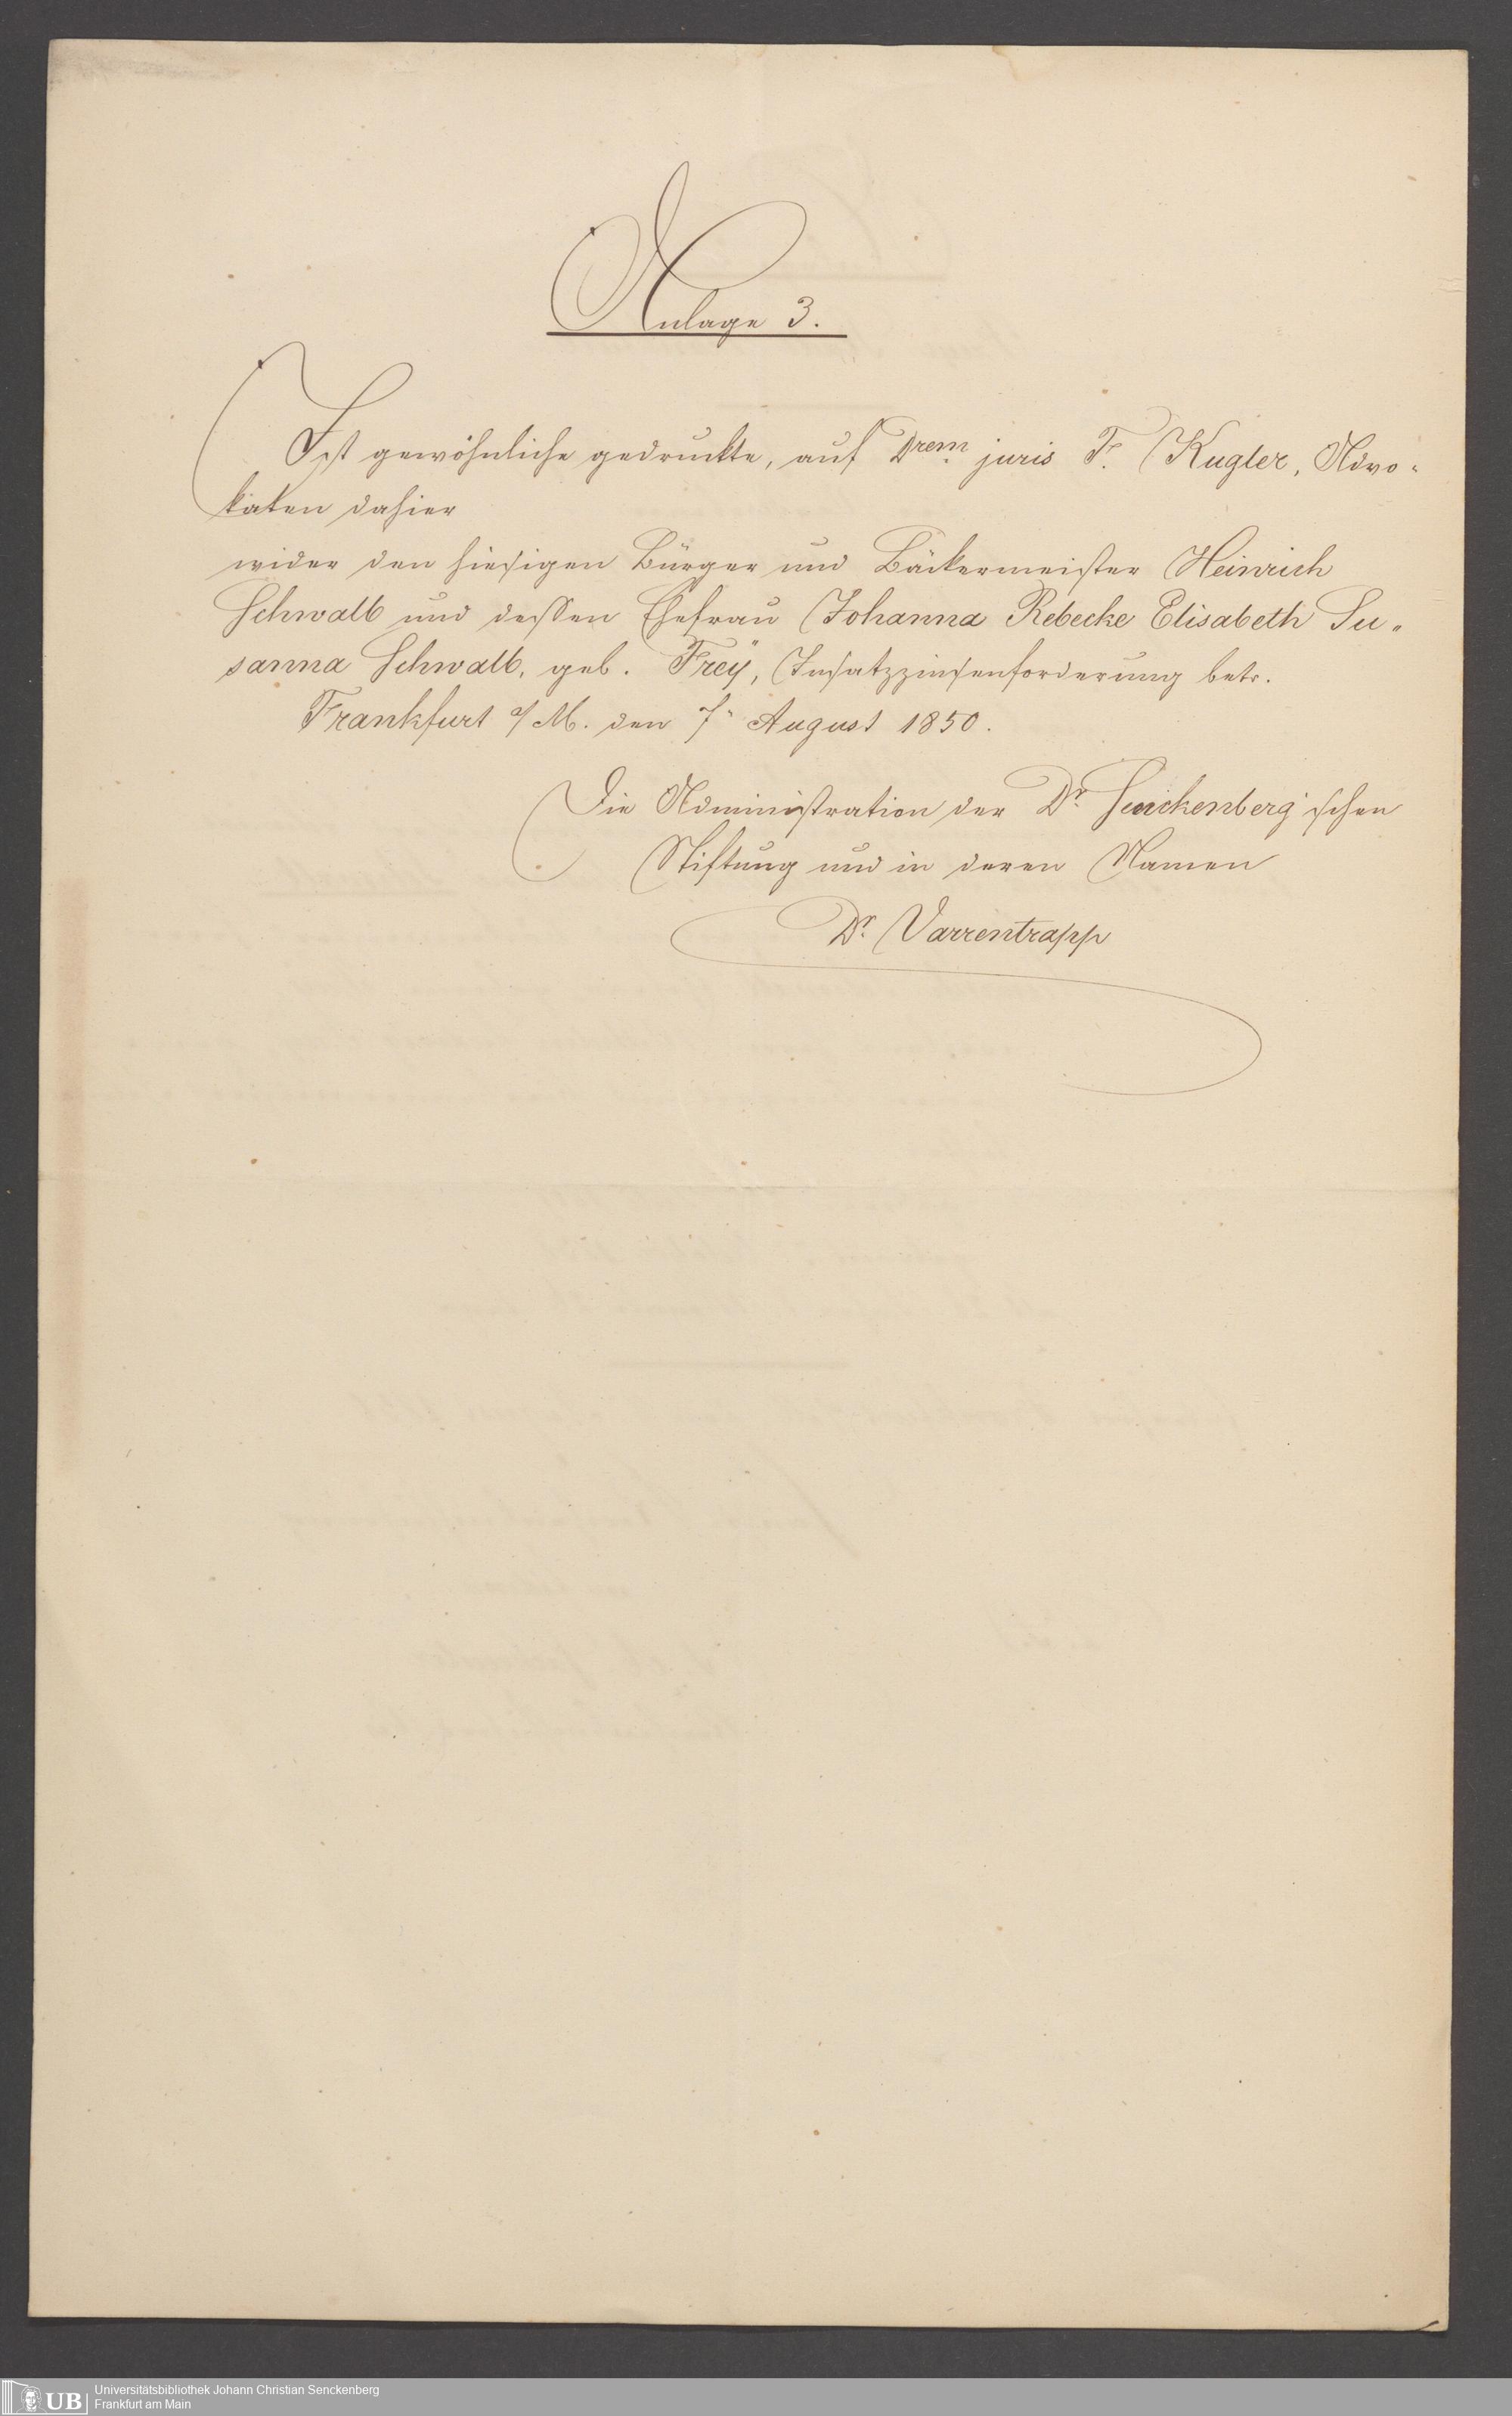 Anlage 3.
Ist gewöhnliche gedruckte, auf Drem juris F. Kugler, Advo-
katen dahier
wider den hiesigen Bürger und Bäckermeister Heinrich
Schwalb und dessen Ehefrau Johanna Rebecke Elisabeth Su-
sanna Schwalb, geb. Freÿ, Insatzzinsenforderung betr.
Frankfurt a/M. den 7. August 1850.
Die Administration der Dr. Senckenberg'schen
Stiftung und in deren Namen
Dr. Varrentrapp
UB
Universitätsbibliothek Johann Christian Senckenberg
Frankfurt am Main